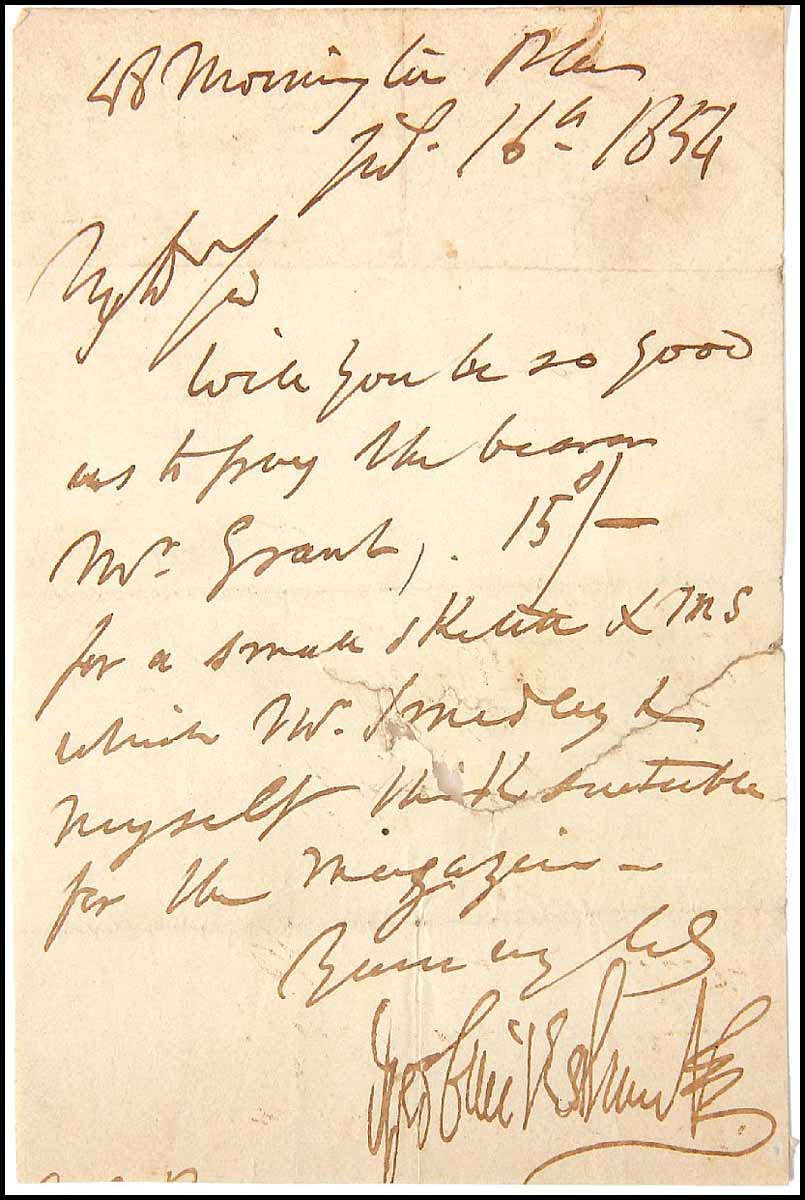 48 Mornington Place
Feb. 16th 1854
My Dr Sir
Will you be so good
as to pay the bearer
Mr. Grant, . 15s/-
for a small sketch & MS
which Mr. Smedley &
myself think suitable
for the Magazine -
Yours very truly
Geo Cruikshank